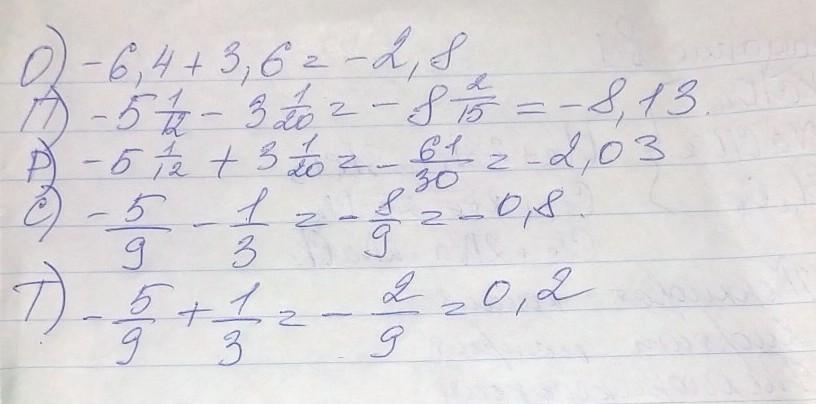 О) -6,4 + 3,6 = -2,8
П) -5 1/12 - 3 1/20 = -8 2/15 = -8,13.
Р) -5 1/12 + 3 1/20 = -61/30 = -2,03
С) -5/9 - 1/3 = -8/9 = -0,8.
Т) -5/9 + 1/3 = -2/9 = 0,2